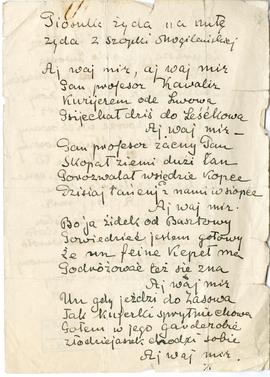 Piosnka żyda na nutę
żyda z Szopki Mogilańskiej
Aj waj mir, aj waj mir
Pan profesor Kawalir
Kuryjerem ode Lwowa
Psijechał dziś do Leśkowa
Aj waj mir —
Pan profesor zacny Pan
Skopał ziemi duzi łan
Porozwalał wsędzie kopce
Dzisiaj tańcuj z nami w siopce
Aj waj mir.
Bo ja żidek od Basztowy
Powiedzieć jestem gotowy
Że un feine Kepeł ma
Podróżować też sie zna
Aj waj mir
Un gdy jeździ do Zasowa
Tak Kuferki sprytnie chowa
Potem w jego garderobie
złodziejasek chodzi sobie
Aj waj mir.